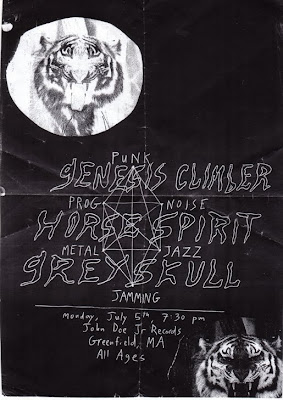 PUNK
GENESIS CLIMBER
PROG NOISE
HORSE SPIRIT
METAL JAZZ
GREYSKULL
JAMMING
Monday, July 5th, 7:30 pm
John Doe Jr Records
Greenfield, MA
All Ages